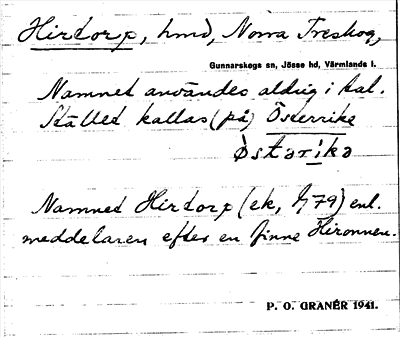 Hirtorp, hmd, Norra Treskog,
Gunnarskogs sn, Jösse hd, Värmlands l.
Namnet användes aldrig i tal.
Stället kallas (på) Österrike
Østəríkə
Namnet Hirtorp (ek, 79) enl.
meddelaren efter en finne Hironnen.
P. O. GRANÉR 1941.